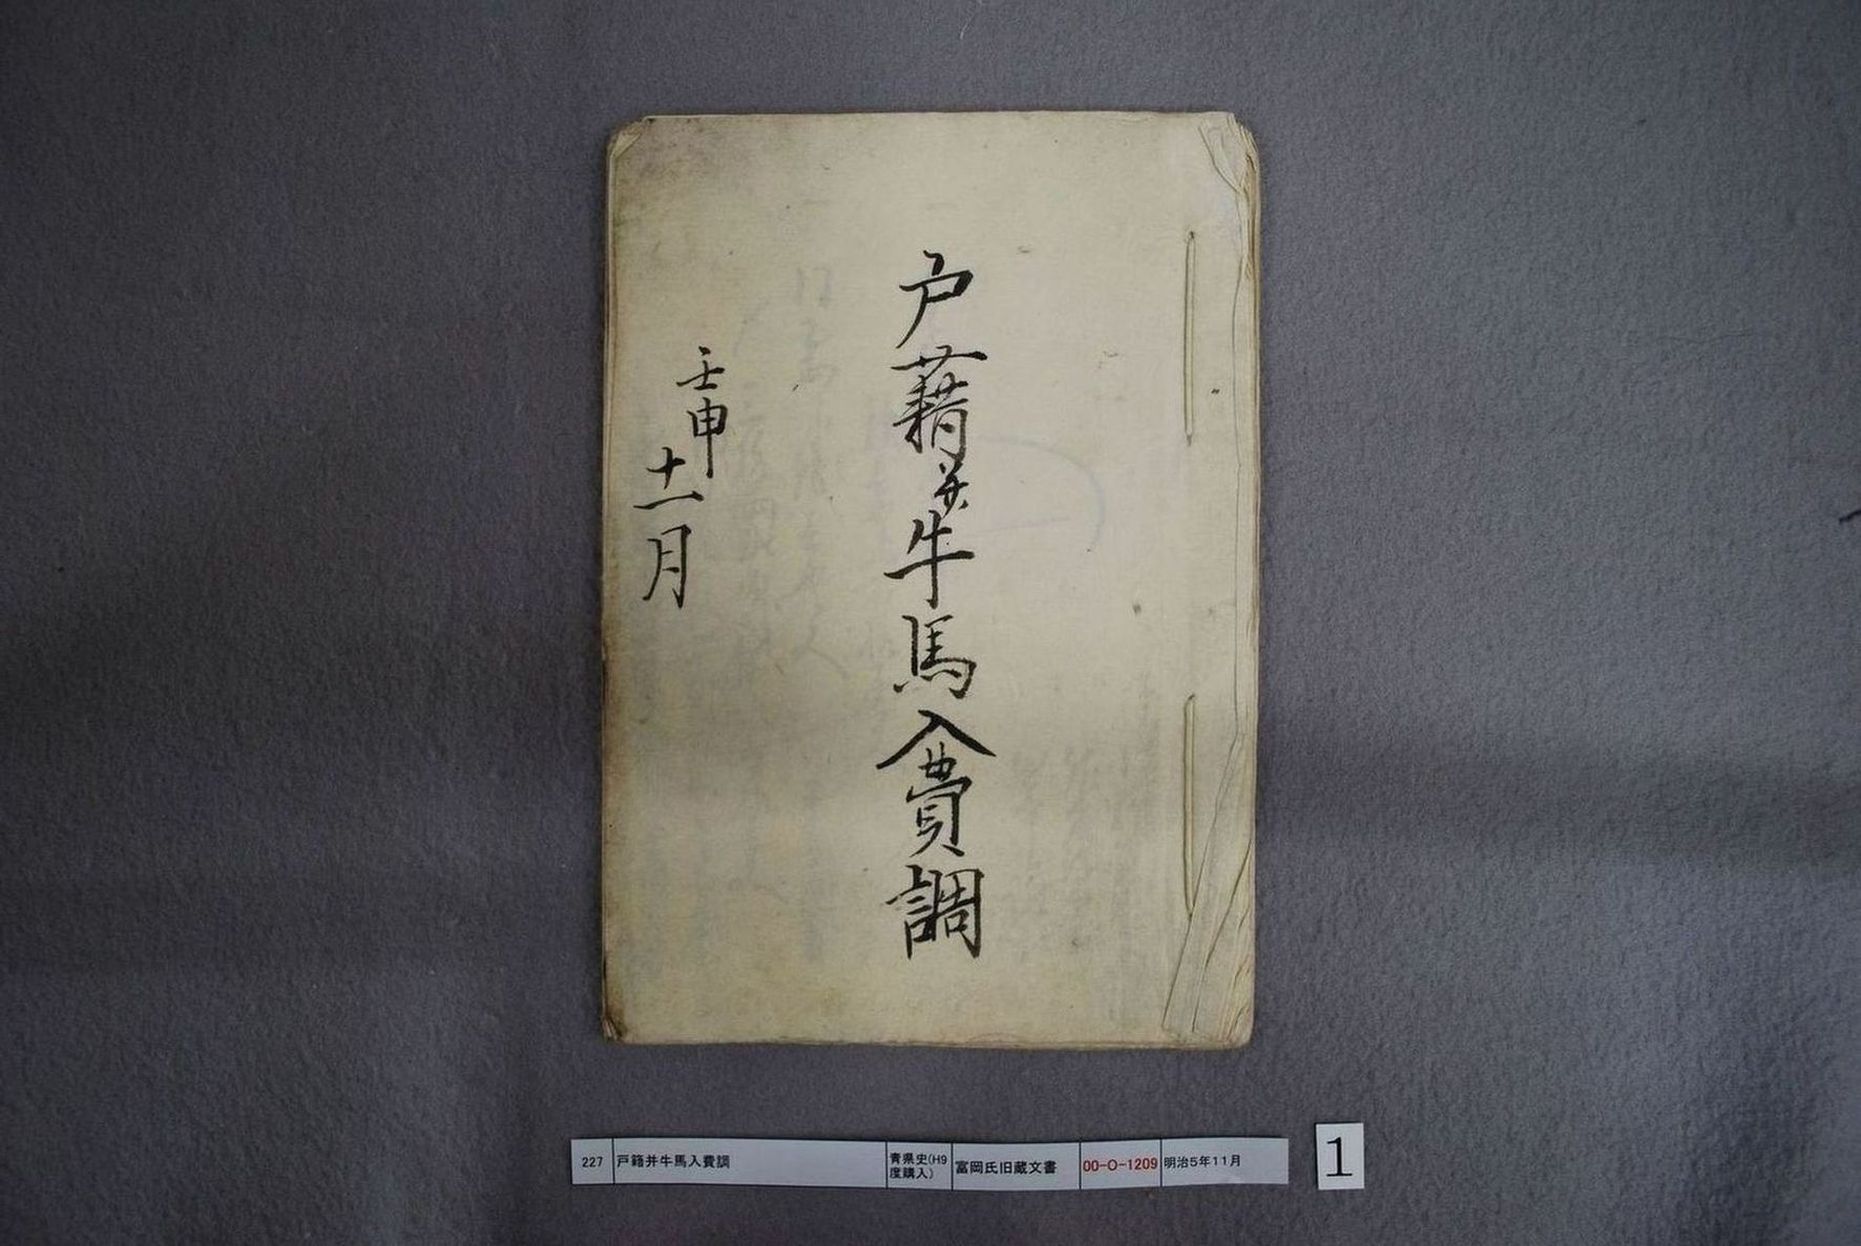 戸藉并牛馬入費調
壬申
十一月
227 戸籍并牛馬入費調 青県史(H9度購入) 富岡氏旧蔵文書 00-O-1209 明治5年11月
1